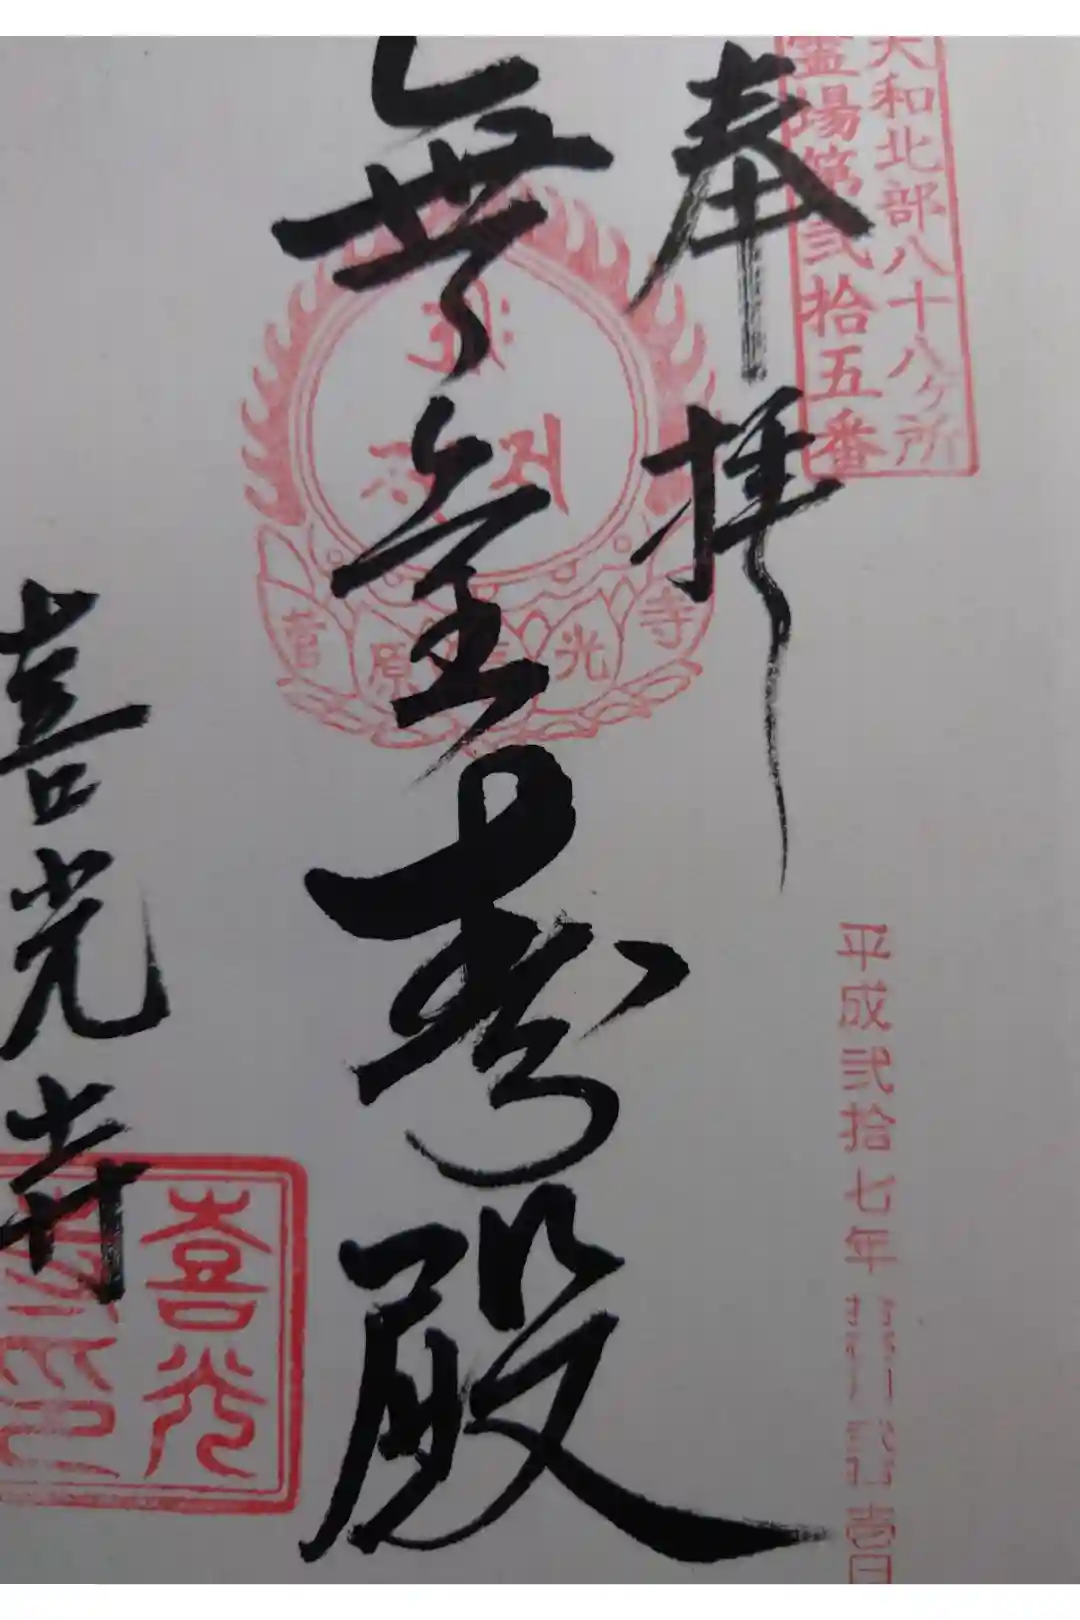 大和北部八十八ヶ所
霊場第弐拾五番
奉拝
平成弐拾七年
壱日
無量寿殿
菅原喜光寺
喜光寺
喜光
寺印